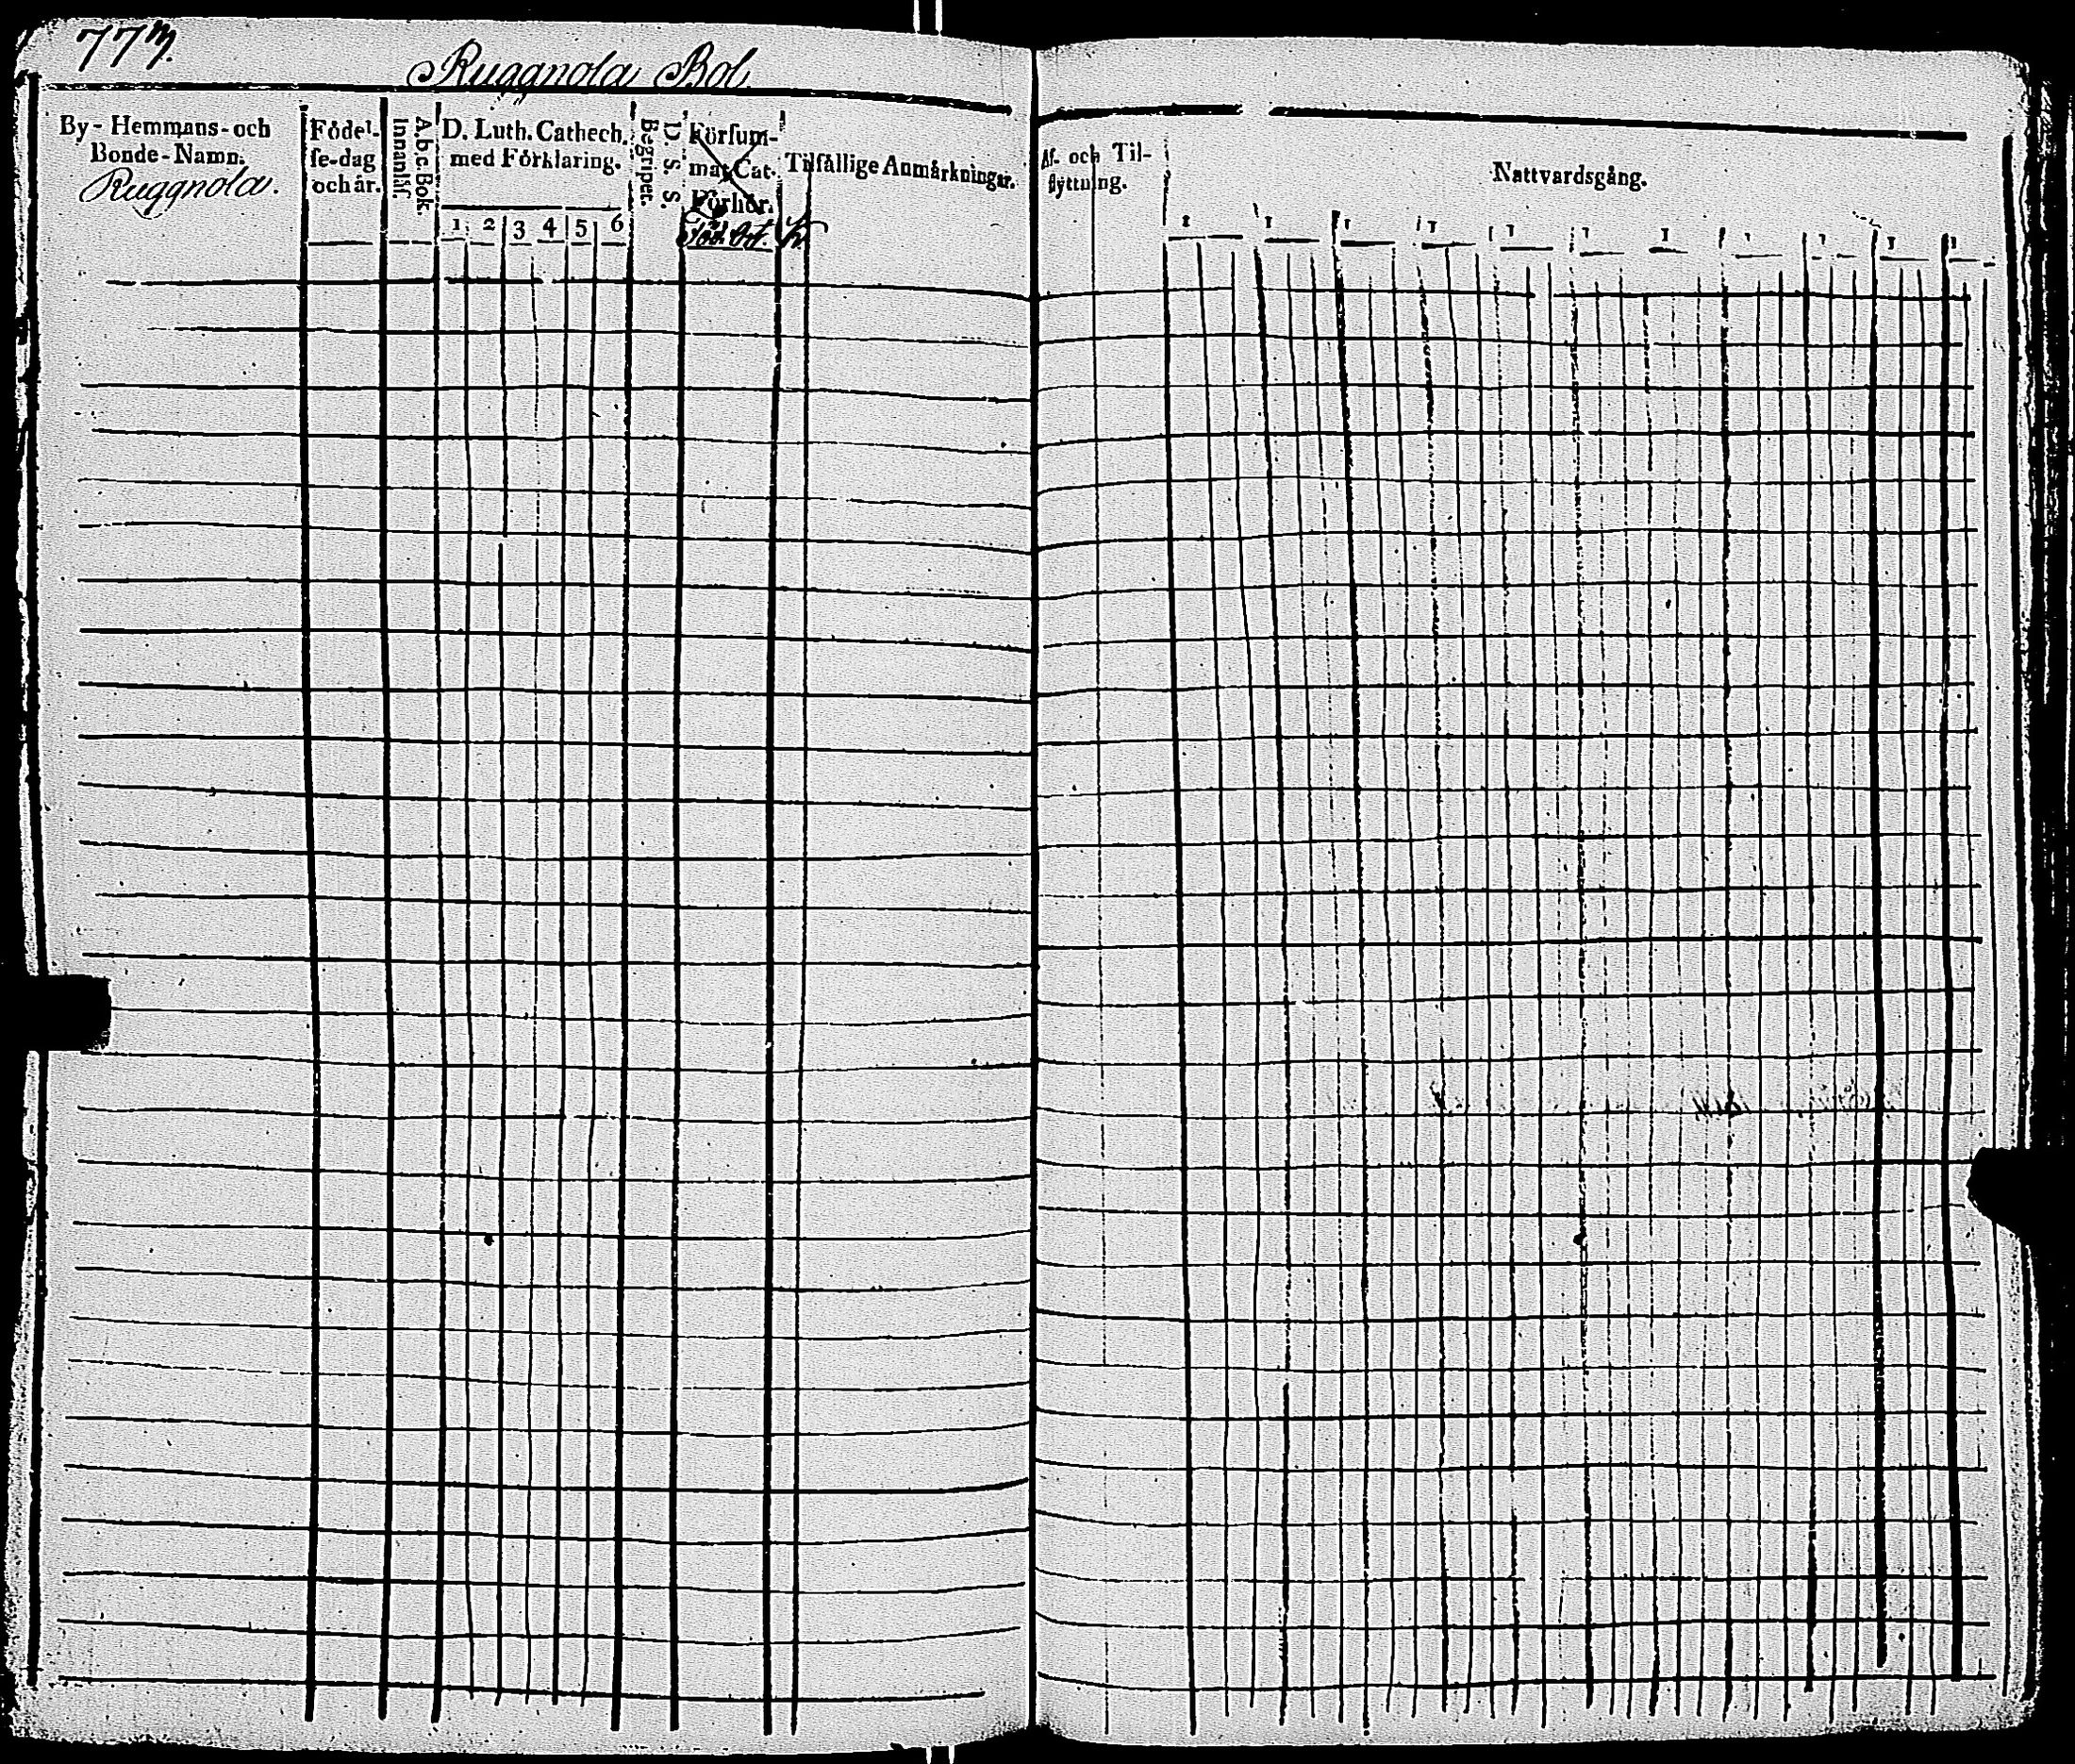 Ruggnola Bol
By - Hemmans - och
Bonde - Namn.
Ruggnola.
Födel-
se-dag
och år.
A.b.c. Bok.
Innanläs.
D. Luth. Cathech.
med Förklaring.
1 2 3 4 5 6
D. S. S.
Begriper.
Försum-
mat Cat.
Förhör.
Tilfällige Anmärkningar.
Af- och Til-
flyttning.
Nattvardsgång.
1 1 1 1 1 1 1 1 1 1 1